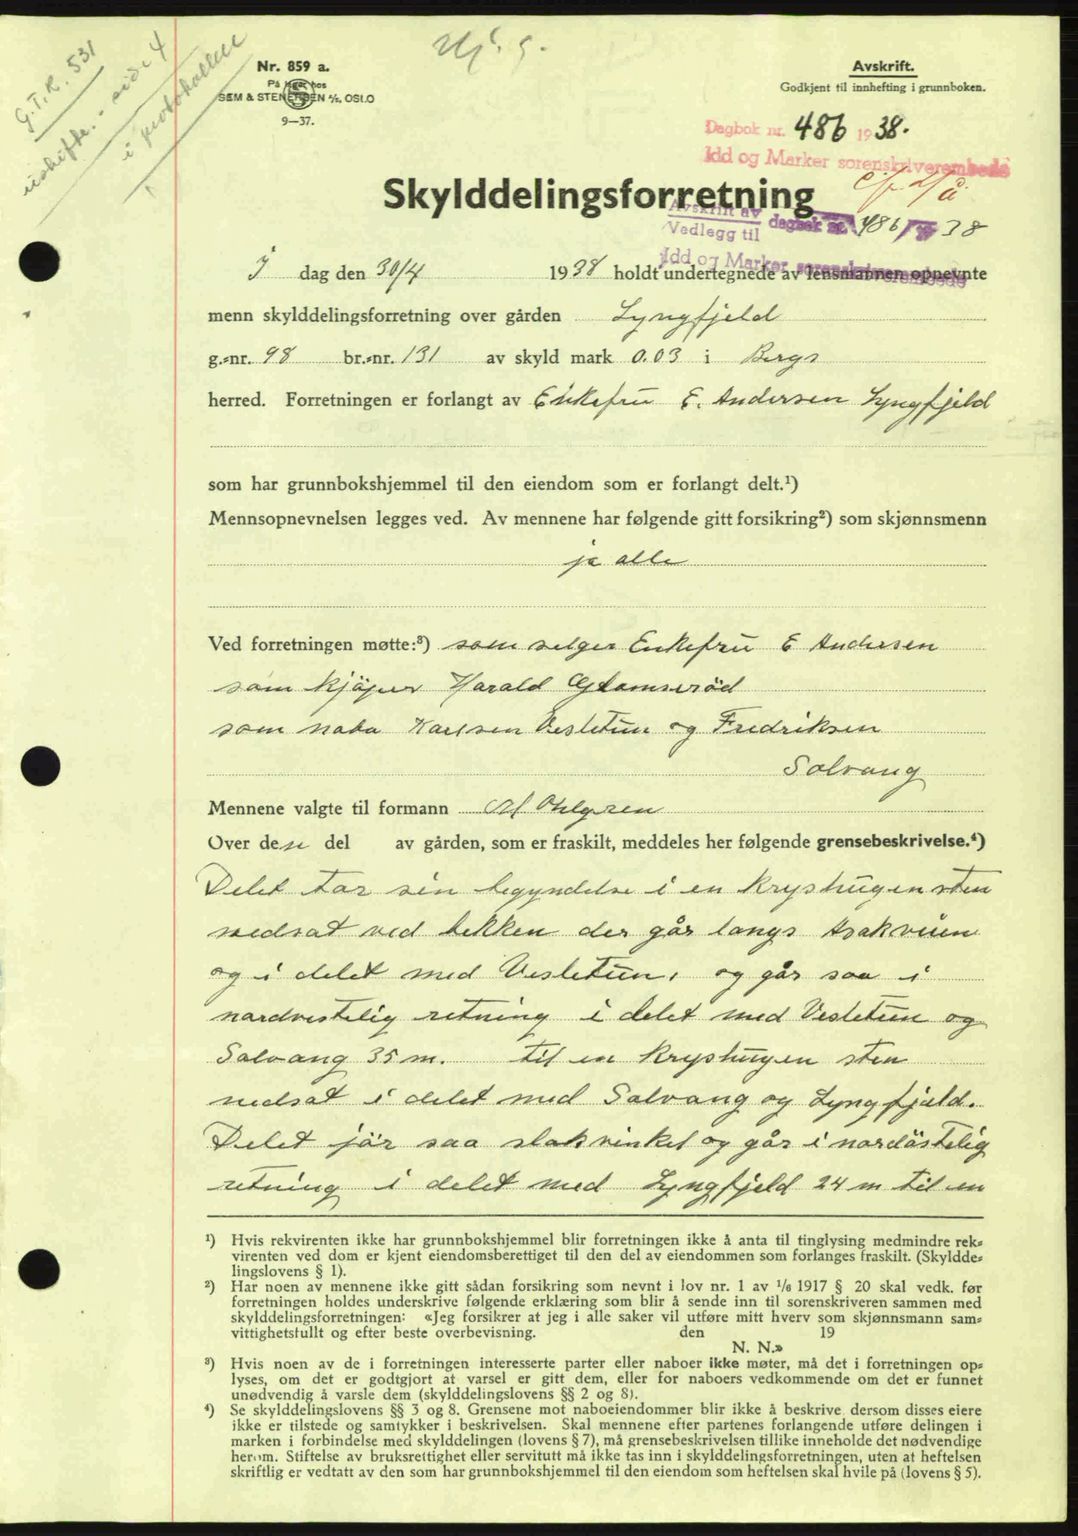 G.T.R. 531
side 4
i protokollen
Nr. 859 a.
På lager hos
SEM & STENERSEN A/S, OSLO
9—37.
Avskrift.
Godkjent til innhefting i grunnboken.
Dagbok nr. 486 1938.
Idd og Marker sorenskriverembede
Skylddelingsforretning
Avskrift av
Vedlegg til dagbok nr. 486 1938
Idd og Marker sorenskriverembede
I dag den 30/4 1938 holdt undertegnede av lensmannen opnevnte
menn skylddelingsforretning over gården Lyngfjeld
g.-nr. 98 br.-nr. 131 av skyld mark 0.03 i Bergs
herred. Forretningen er forlangt av Enkefru E. Andersen Lyngfjeld
som har grunnbokshjemmel til den eiendom som er forlangt delt.¹)
Mennsopnevnelsen legges ved. Av mennene har følgende gitt forsikring²) som skjønnsmenn
ja alle
Ved forretningen møtte:³) som selger Enkefru E Andersen
som kjöper Harald Glomseröd
som nabo Karlsen Vesletun og Fredriksen
Solvang
Mennene valgte til formann M Ohlgren
Over denne del av gården, som er fraskilt, meddeles her følgende grensebeskrivelse.⁴)
Delet tar sin begyndelse i en kryshugen sten
nedsat ved bekken der går langs Asakveien
og i delet med Vesletun, og går saa i
nordvestelig retning i delet med Vesletun og
Solvang 35 m. til en kryshugen sten
nedsat i delet med Solvang og Lyngfjeld.
Delet jör saa slak vinkel og går i nordöstelig
retning i delet med Lyngfjeld 24 m til en
¹) Hvis rekvirenten ikke har grunnbokshjemmel blir forretningen ikke å anta til tinglysing medmindre rek-
virenten ved dom er kjent eiendomsberettiget til den del av eiendommen som forlanges fraskilt. (Skyldde-
lingslovens § 1).
²) Har noen av mennene ikke gitt sådan forsikring som nevnt i lov nr. 1 av ¹/₆ 1917 § 20 skal vedk. før
forretningen holdes underskrive følgende erklæring som blir å sende inn til sorenskriveren sammen med
skylddelingsforretningen: «Jeg forsikrer at jeg i alle saker vil utføre mitt hverv som skjønnsmann sam-
vittighetsfullt og efter beste overbevisning. den 19
N. N.»
³) Hvis noen av de i forretningen interesserte parter eller naboer ikke møter, må det i forretningen op-
lyses, om det er godtgjort at varsel er gitt dem, eller for naboers vedkommende om det er funnet
unødvendig å varsle dem (skylddelingslovens §§ 2 og 8).
⁴) Se skylddelingslovens §§ 3 og 8. Grensene mot naboeiendommer blir ikke å beskrive dersom disses eiere
ikke er tilstede og samtykker i beskrivelsen. Skal mennene efter partenes forlangende utføre delingen i
marken i forbindelse med skylddelingen (lovens § 7), må grensebeskrivelsen tillike inneholde det nødvendige
herom. Stiftelse av bruksrettighet eller servitutt må ikke tas inn i skylddelingsforretningen, uten at heftelsen
skriftlig er vedtatt av den som har grunnbokshjemmel til den eiendom som heftelsen skal hvile på (lovens § 5).